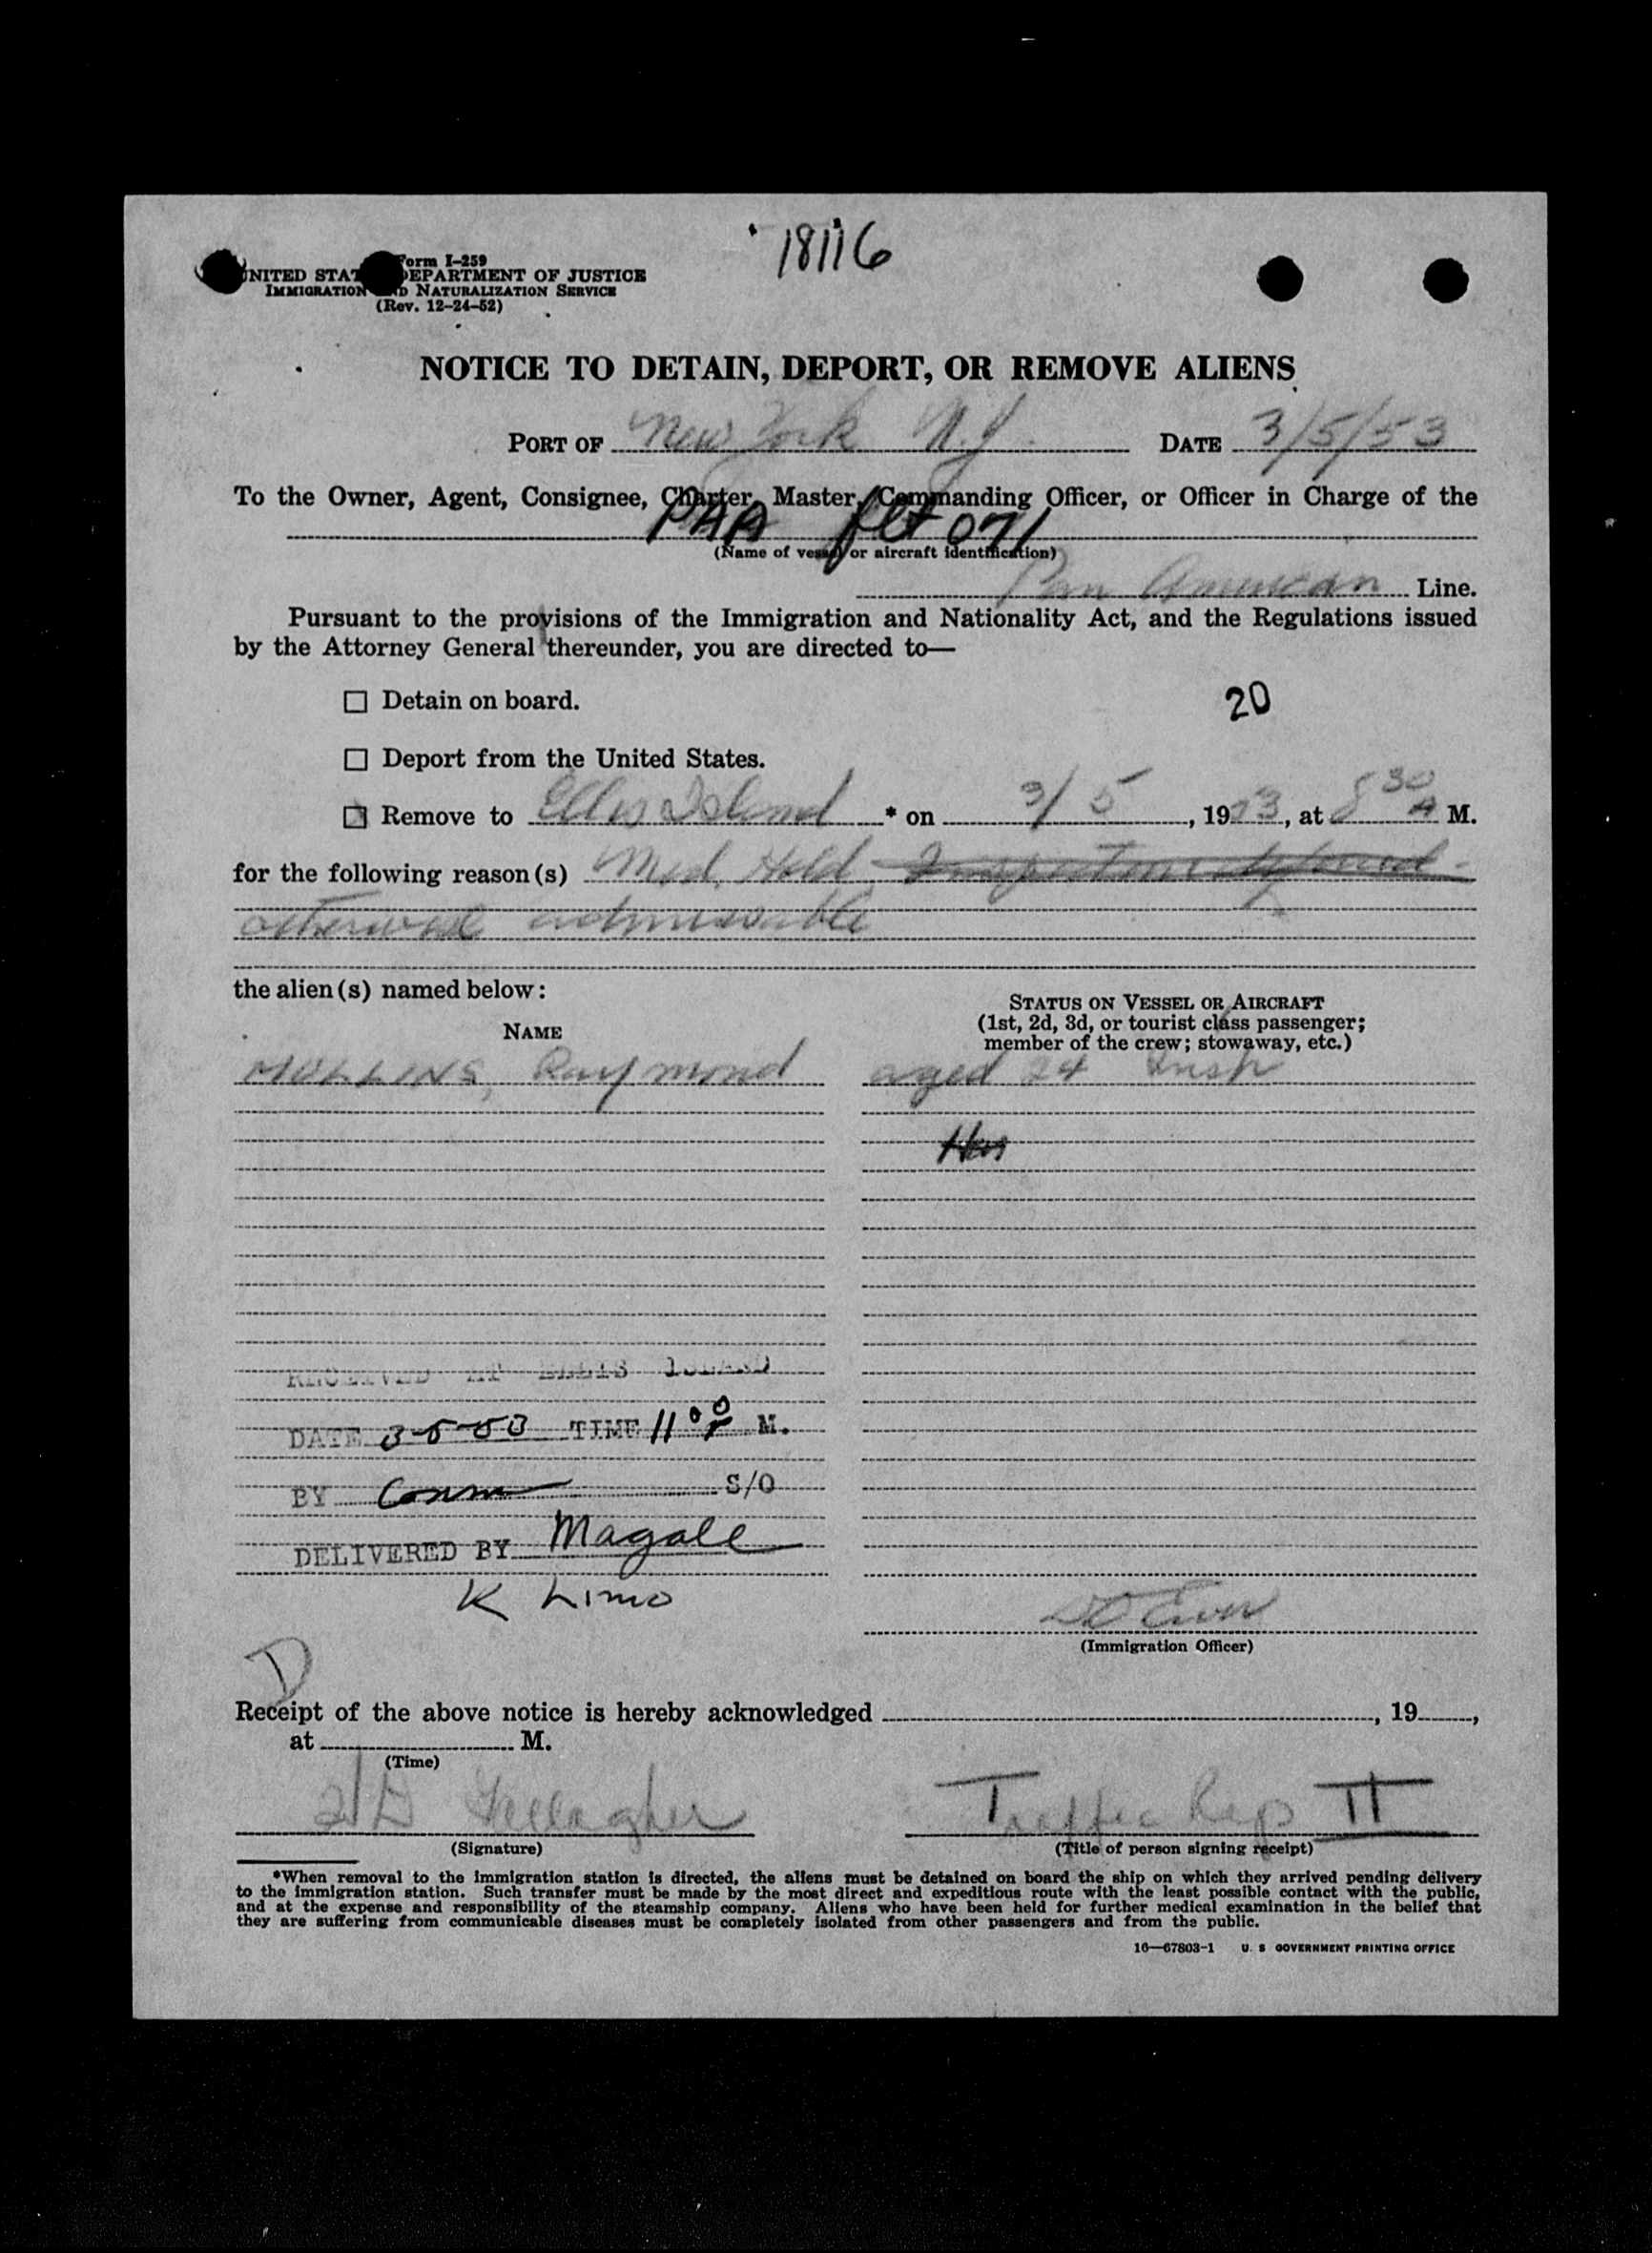 18116
Form I-259
UNITED STATES DEPARTMENT OF JUSTICE
IMMIGRATION AND NATURALIZATION SERVICE
(Rev. 12-24-52)
NOTICE TO DETAIN, DEPORT, OR REMOVE ALIENS
PORT OF New York N.Y. DATE 3/5/53
To the Owner, Agent, Consignee, Charter, Master, Commanding Officer, or Officer in Charge of the
PAA flt 071
(Name of vessel or aircraft identification)
Pan American Line.
Pursuant to the provisions of the Immigration and Nationality Act, and the Regulations issued
by the Attorney General thereunder, you are directed to—
☐ Detain on board.
20
☐ Deport from the United States.
☐ Remove to Ellis Island * on 3/5, 1953, at 8 30 A M.
for the following reason(s) Med. Hold
otherwise admissable
the alien(s) named below:
NAME
STATUS ON VESSEL OR AIRCRAFT
(1st, 2d, 3d, or tourist class passenger;
member of the crew; stowaway, etc.)
MULLINS, Raymond aged 24
RECEIVED AT ELLIS ISLAND
DATE 3-5-53 TIME 11 00 M.
BY S/O
DELIVERED BY Magale
K Limo
(Immigration Officer)
D
Receipt of the above notice is hereby acknowledged , 19 ,
at M.
(Time)
Gallagher Traffic Rep II
(Signature) (Title of person signing receipt)
*When removal to the immigration station is directed, the aliens must be detained on board the ship on which they arrived pending delivery
to the immigration station. Such transfer must be made by the most direct and expeditious route with the least possible contact with the public,
and at the expense and responsibility of the steamship company. Aliens who have been held for further medical examination in the belief that
they are suffering from communicable diseases must be completely isolated from other passengers and from the public.
16—67803-1 U. S GOVERNMENT PRINTING OFFICE